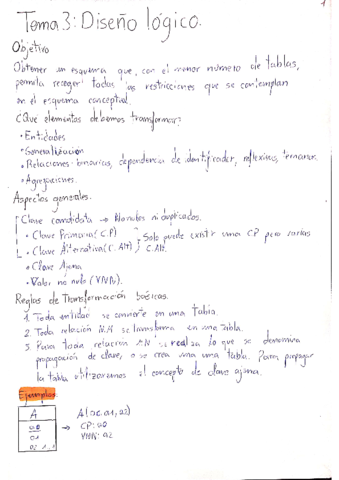 1
Tema 3: Diseño lógico.
Objetivo
Obtener un esquema que, con el menor número de tablas,
permita recoger todas las restricciones que se contemplan
en el esquema conceptual.
¿Que elementos debemos transformar?
• Entidades
• Generalización
• Relaciones: binarias, dependencia de identificador, reflexivas, ternarias.
• Agregaciones.
Aspectos generales.
Clave candidata → No nulos ni duplicados.
• Clave Primaria (C.P) } Solo puede existir una CP pero varias
• Clave Alternativa (C.Alt) } C.Alt.
• Clave Ajena
• Valor no nulo (VNN).
Reglas de Transformación básicas.
1. Toda entidad se convierte en una Tabla.
2. Toda relación N:N se transforma en una tabla.
3. Para toda relación 1:N se realiza lo que se denomina
propagación de clave, o se crea una tabla. Para propagar
la tabla utilizaremos el concepto de clave ajena.
Ejemplo:
A → A(a0, a1, a2)
a0 CP: a0
a1 VNN: a2
a2